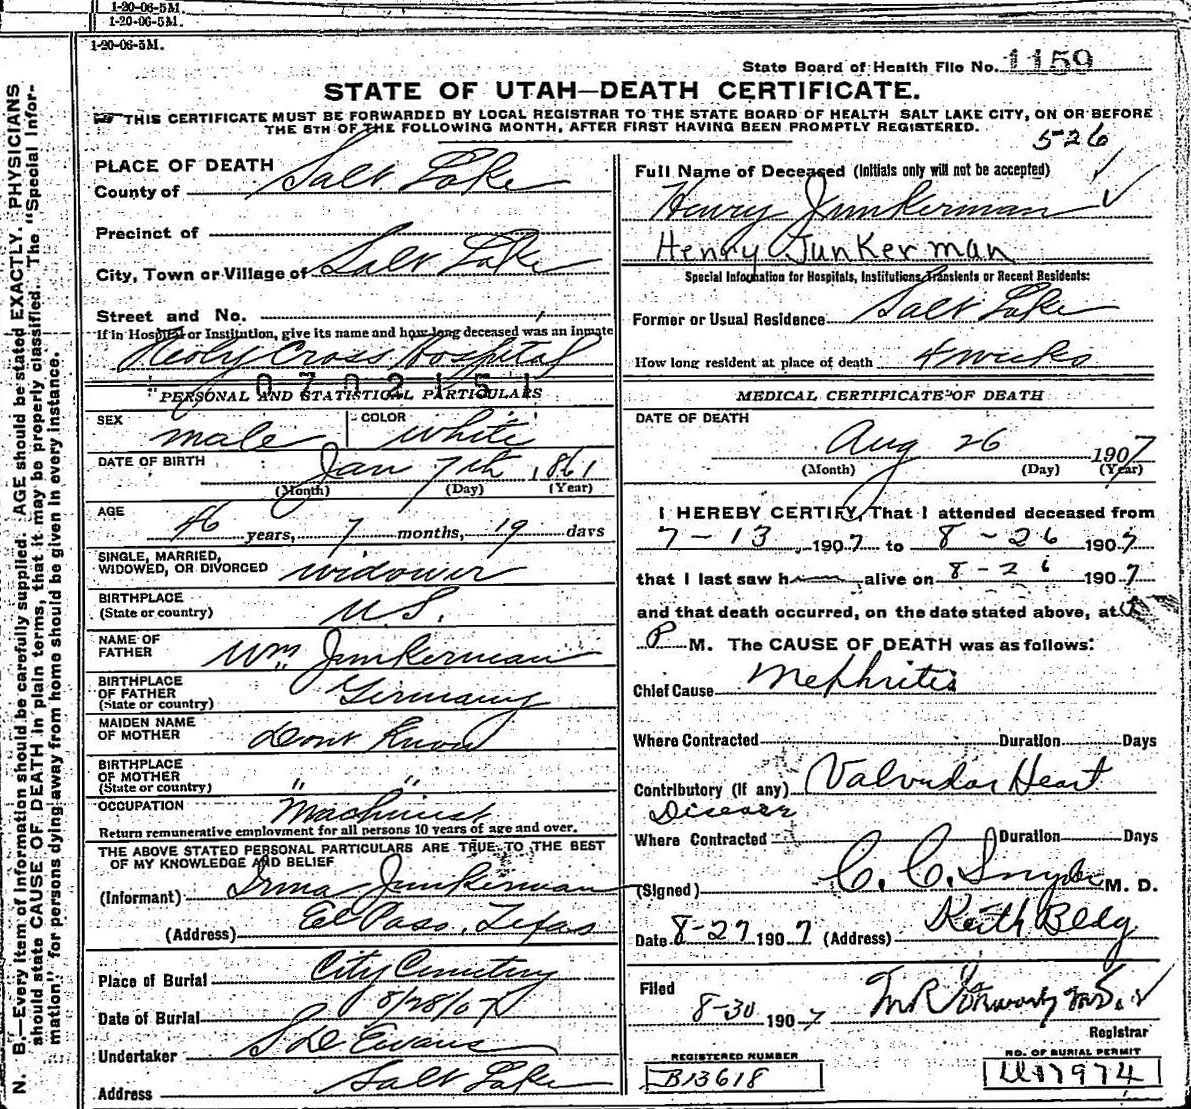 1-20-06-5M.
1-20-06-5M.
1-20-06-5M.
State Board of Health File No. 1159
STATE OF UTAH—DEATH CERTIFICATE.
THIS CERTIFICATE MUST BE FORWARDED BY LOCAL REGISTRAR TO THE STATE BOARD OF HEALTH SALT LAKE CITY, ON OR BEFORE
THE 5TH OF THE FOLLOWING MONTH, AFTER FIRST HAVING BEEN PROMPTLY REGISTERED.
526
N. B.—Every item of information should be carefully supplied. AGE should be stated EXACTLY. PHYSICIANS
should state CAUSE OF DEATH in plain terms, that it may be properly classified. The "Special Infor-
mation," for persons dying away from home should be given in every instance.
PLACE OF DEATH
County of Salt Lake
Precinct of
City, Town or Village of Salt Lake
Street and No.
If in Hospital or Institution, give its name and how long deceased was an inmate
Holy Cross Hospital
0702151
PERSONAL AND STATISTICAL PARTICULARS
SEX male COLOR white
DATE OF BIRTH Jan 7th 1861
(Month) (Day) (Year)
AGE
46 years, 7 months, 19 days
SINGLE, MARRIED,
WIDOWED, OR DIVORCED widower
BIRTHPLACE
(State or country) U.S.
NAME OF
FATHER Wm Junkerman
BIRTHPLACE
OF FATHER
(State or country) Germany
MAIDEN NAME
OF MOTHER Dont Know
BIRTHPLACE
OF MOTHER
(State or country) " "
OCCUPATION Machinist
Return remunerative employment for all persons 10 years of age and over.
THE ABOVE STATED PERSONAL PARTICULARS ARE TRUE TO THE BEST
OF MY KNOWLEDGE AND BELIEF
(Informant) Irma Junkerman
(Address) El Paso, Texas
Place of Burial City Cemetery
Date of Burial 8/28/07
Undertaker S D Evans
Address Salt Lake
Full Name of Deceased (Initials only will not be accepted)
Henry Junkerman
Henry Junkerman
Special Information for Hospitals, Institutions, Transients or Recent Residents:
Former or Usual Residence Salt Lake
How long resident at place of death 4 weeks
MEDICAL CERTIFICATE OF DEATH
DATE OF DEATH
Aug 26 1907
(Month) (Day) (Year)
I HEREBY CERTIFY, That I attended deceased from
7-13 1907 to 8-26 1907
that I last saw him alive on 8-26 1907
and that death occurred, on the date stated above, at
P M. The CAUSE OF DEATH was as follows:
Chief Cause Nephritis
Where Contracted Duration Days
Contributory (if any) Valvular Heart
Disease
Where Contracted Duration Days
(Signed) C. C. Snyder M. D.
Date 8-27 1907 (Address) Keith Bldg
Filed
8-30 1907
Registrar
REGISTERED NUMBER
B13618
NO. OF BURIAL PERMIT
17974